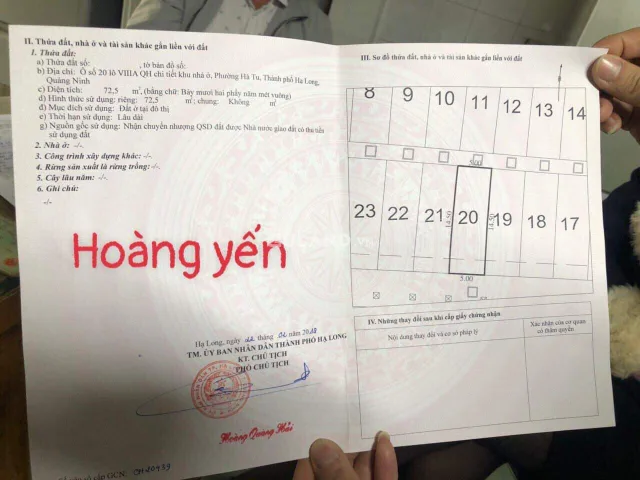 II. Thửa đất, nhà ở và tài sản khác gắn liền với đất
1. Thửa đất:
a) Thửa đất số: , tờ bản đồ số:
b) Địa chỉ: Ô số 20 lô VIIIA QH chi tiết khu nhà ở, Phường Hà Tu, Thành phố Hạ Long,
Quảng Ninh
c) Diện tích: 72,5 m², (bằng chữ: Bảy mươi hai phẩy năm mét vuông)
d) Hình thức sử dụng: riêng: 72,5 m²; chung: Không m²
đ) Mục đích sử dụng: Đất ở tại đô thị
e) Thời hạn sử dụng: Lâu dài
g) Nguồn gốc sử dụng: Nhận chuyển nhượng QSD đất được Nhà nước giao đất có thu tiền
sử dụng đất
2. Nhà ở: -/-
3. Công trình xây dựng khác: -/-
4. Rừng sản xuất là rừng trồng: -/-
5. Cây lâu năm: -/-
6. Ghi chú:
-/-
Hoàng yến
Hạ Long, ngày tháng năm 2018
TM. ỦY BAN NHÂN DÂN THÀNH PHỐ HẠ LONG
KT. CHỦ TỊCH
PHÓ CHỦ TỊCH
Hoàng Quang Hải
III. Sơ đồ thửa đất, nhà ở và tài sản khác gắn liền với đất
8 9 10 11 12 13 14
5.00
23 22 21 14.50 20 14.50 19 18 17
5.00
IV. Những thay đổi sau khi cấp giấy chứng nhận
Nội dung thay đổi và cơ sở pháp lý
Xác nhận của cơ quan
có thẩm quyền